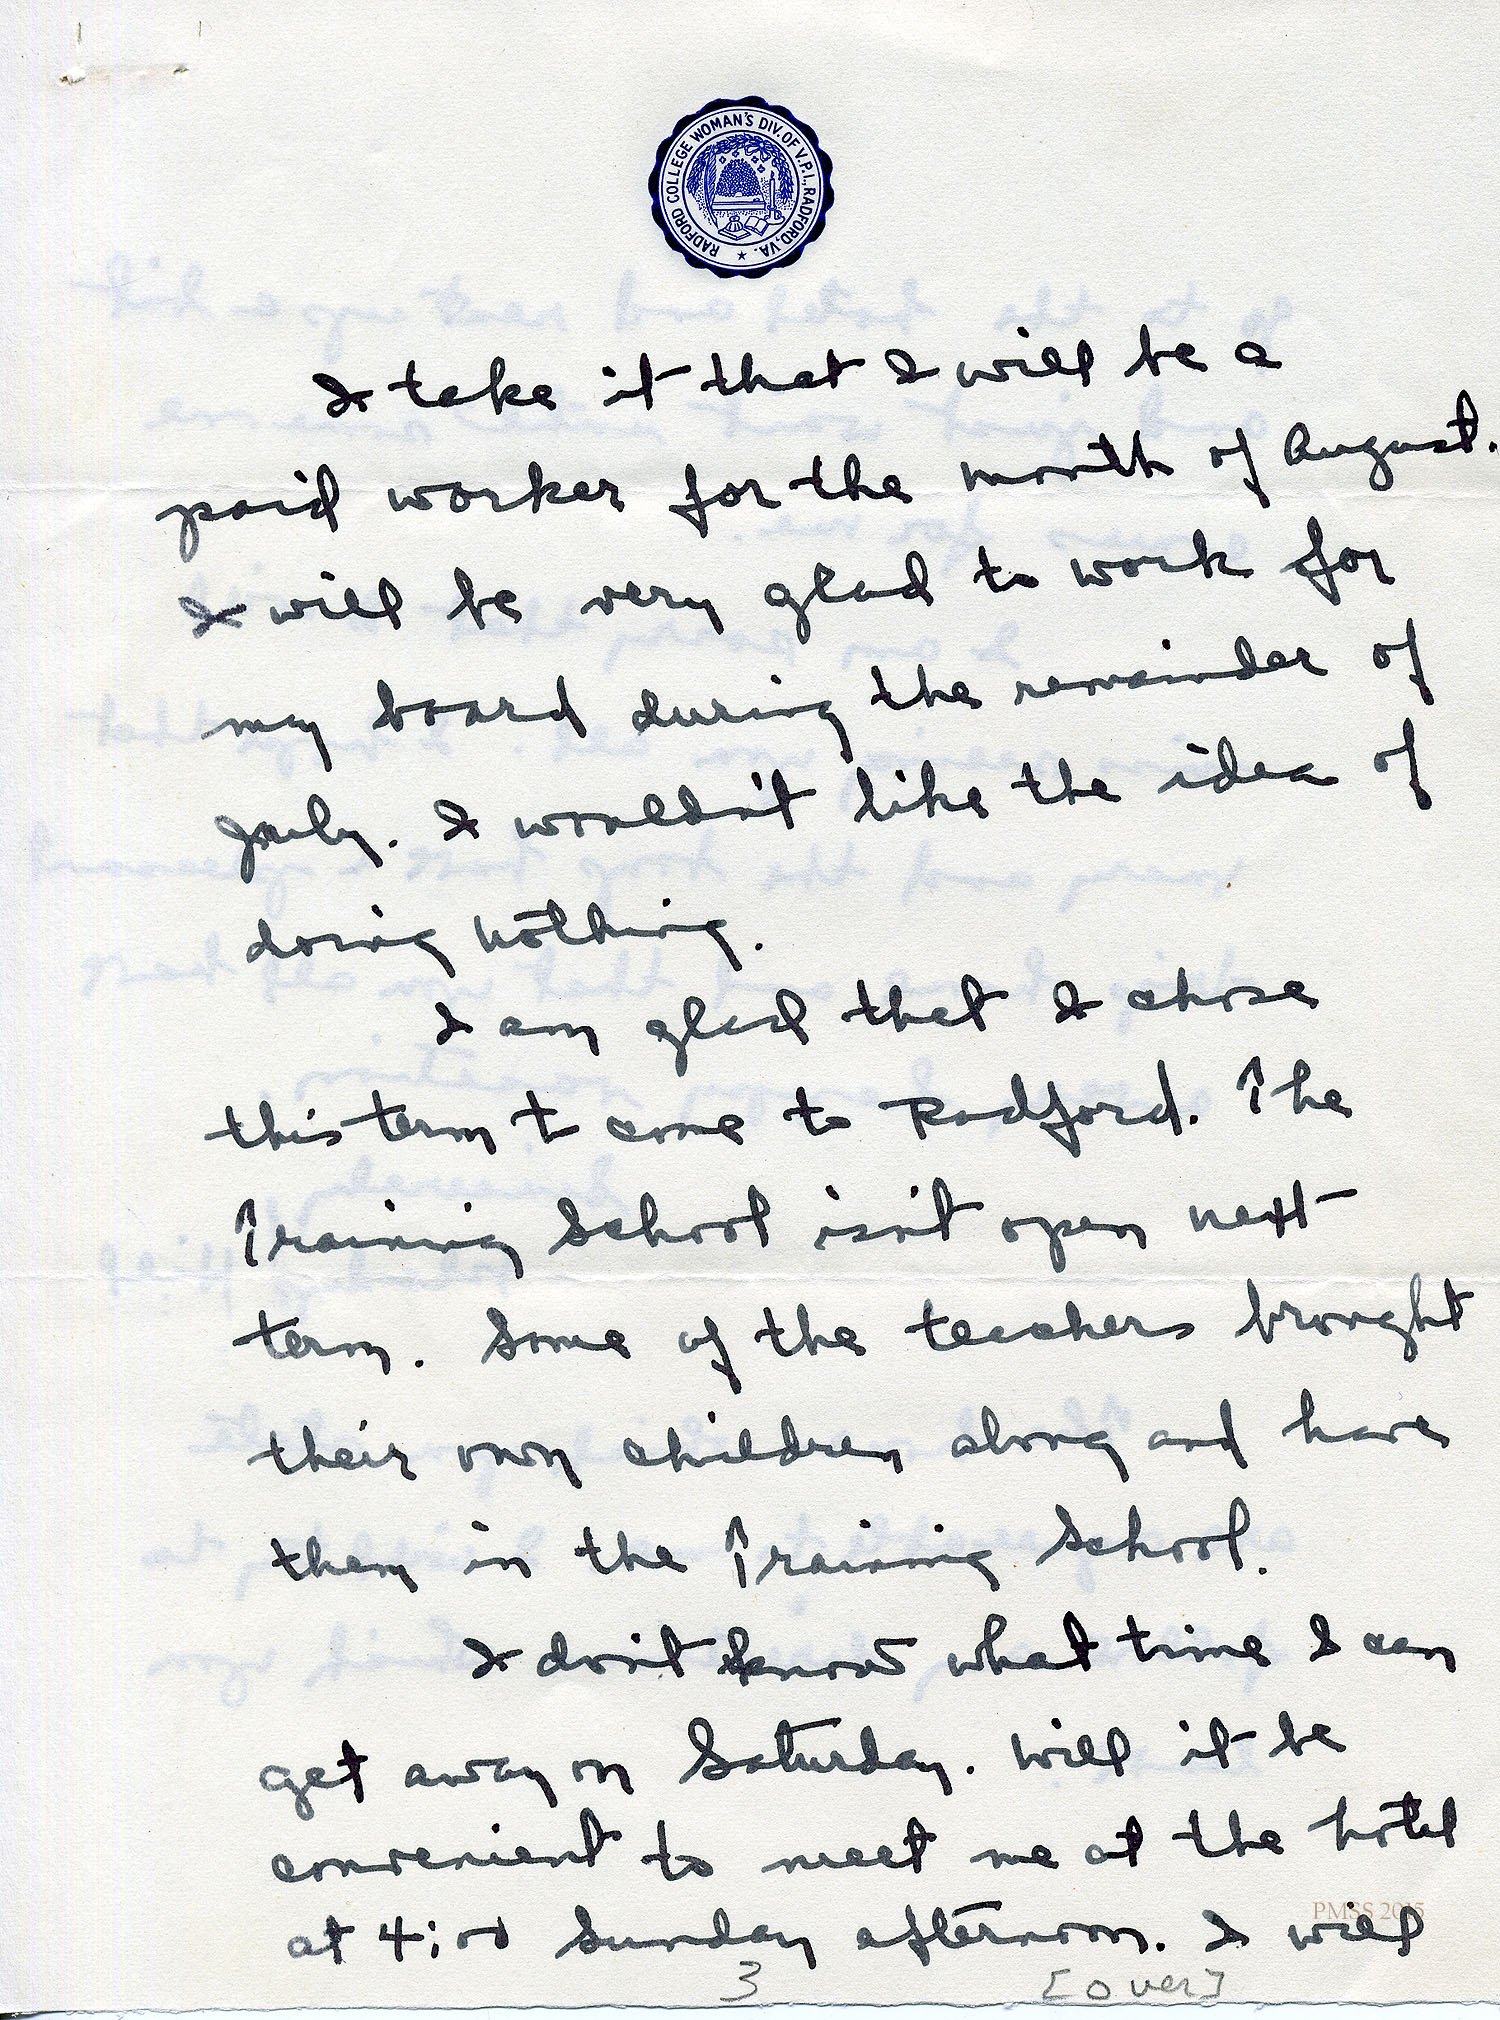 RADFORD COLLEGE WOMAN'S DIV. OF V.P.I., RADFORD, VA.
I take it that I will be a
paid worker for the month of August.
I will be very glad to work for
my board during the remainder of
July. I wouldn't like the idea of
doing nothing.
I am glad that I chose
this term to come to Radford. The
Training School isn't open next
term. Some of the teachers brought
their own children along and have
them in the Training School.
I don't know what time I can
get away on Saturday. Will it be
convenient to meet me at the hotel
at 4:00 Sunday afternoon. I will
3 [over]
PMSS 2015